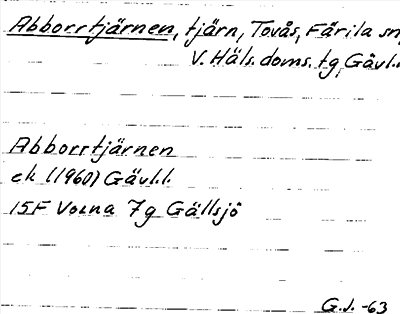 Abborrtjärnen, tjärn, Tovås, Färila sn,
V. Häls. doms. tg, Gävl.
Abborrtjärnen
ek (1960) Gävl.l.
15F Voxna 7g Gällsjö
G.J. -63